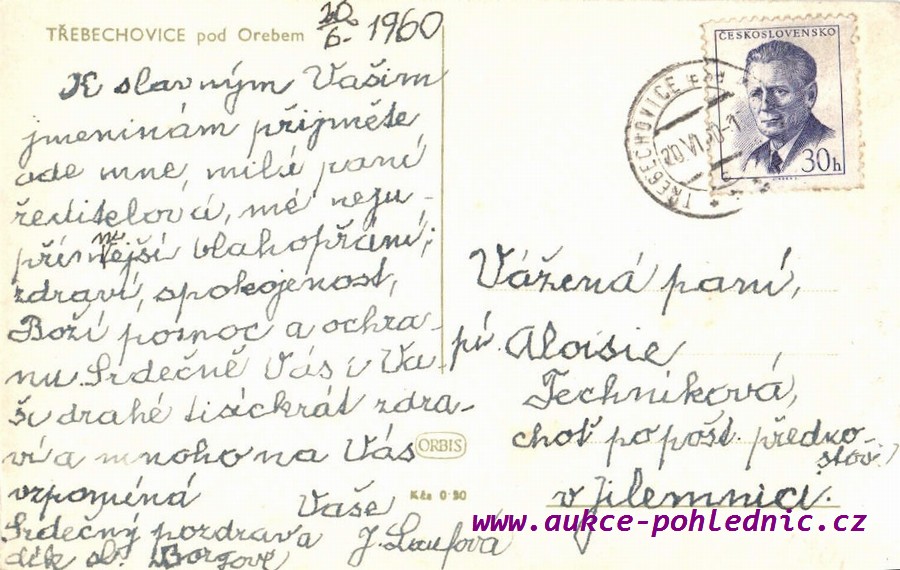 TŘEBECHOVICE pod Orebem
20/6. 1960
K slavným Vašim
jmeninám přijměte
ode mne, milá paní
ředitelová, mé neju-
přímnější blahopřání;
zdraví, spokojenost,
Boží pomoc a ochra-
nu. Srdečně Vás i Va-
ši drahé tisíckrát zdra-
ví a mnoho na Vás
vzpomíná
Vaše
J. Laufová
Srdečný pozdrav a
dík sl.
ORBIS
Kčs 0·50
ČESKOSLOVENSKO
30h
TŘEBECHOVICE
20.VI.
Vážená paní,
pí. Aloisie
Techniková,
choť po pošt. předno-
stovi
v Jilemnici.
www.aukce-pohlednic.cz